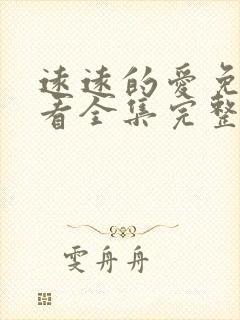 远远的爱免
看全集完整
雯舟舟